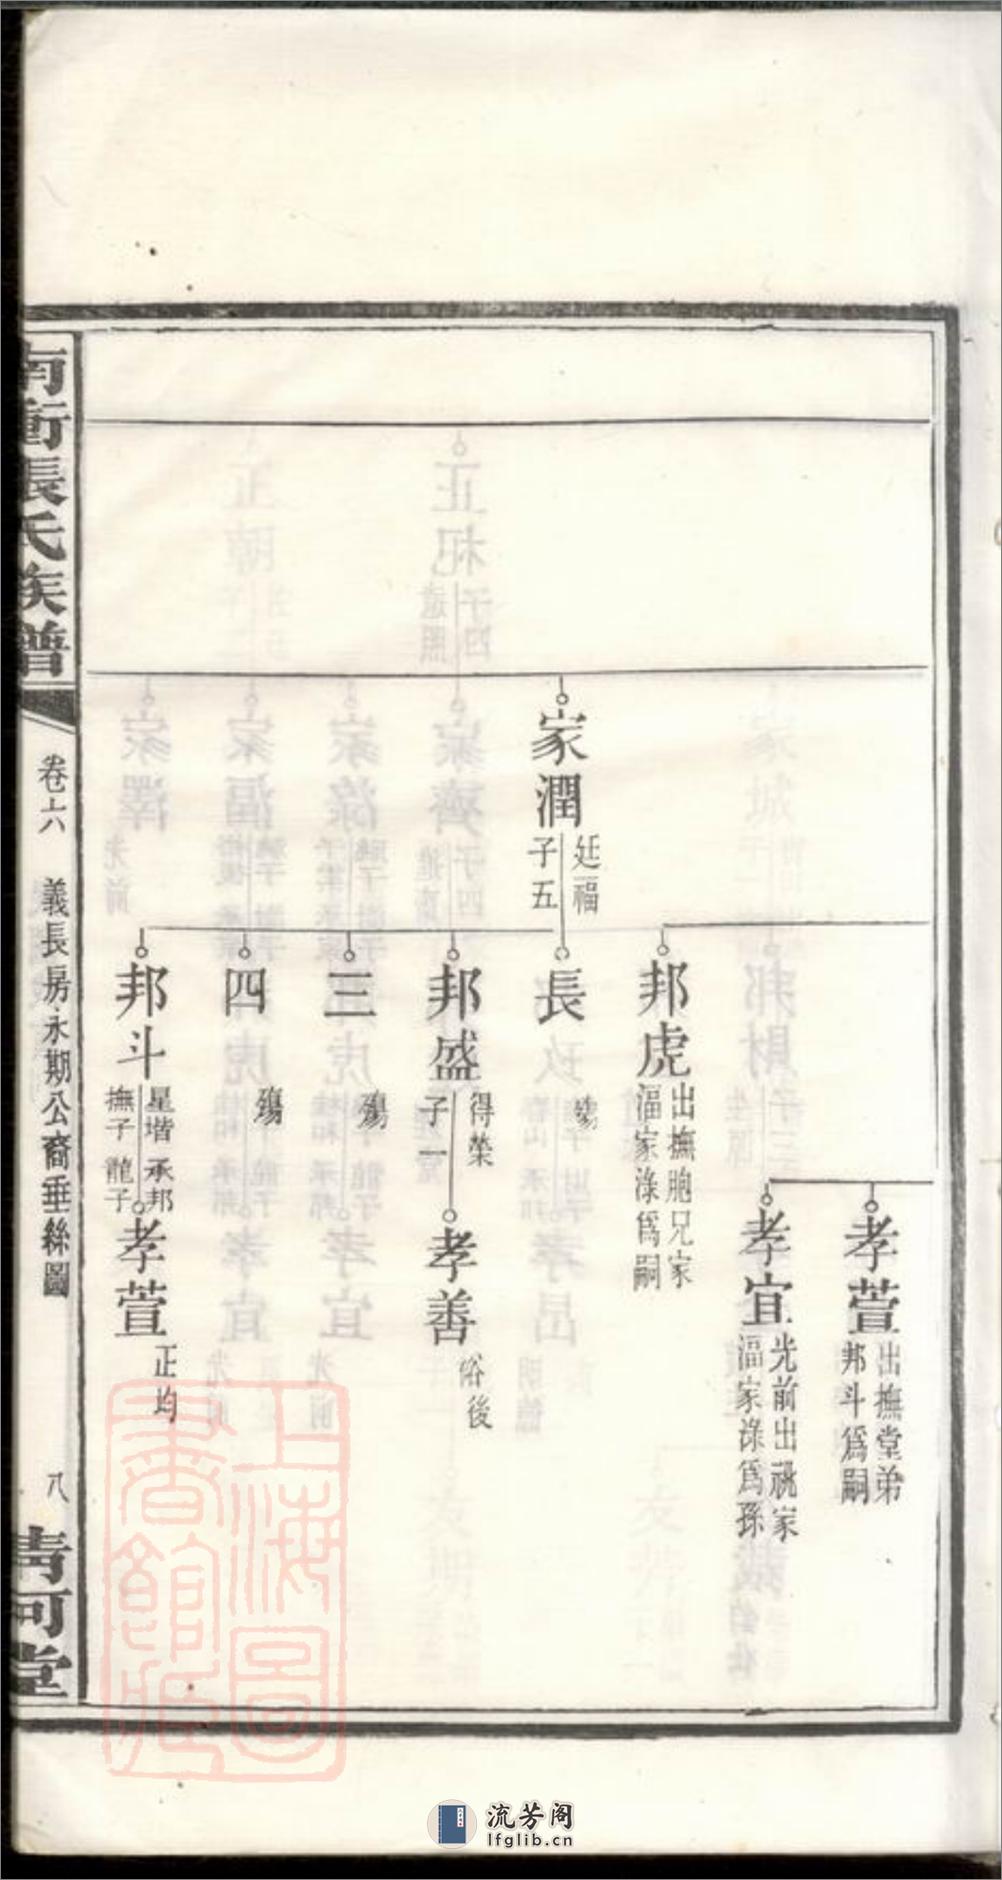 孝萱
出撫堂弟
邦斗爲嗣
孝宜
光前出祧家
淐家淥爲孫
邦虎
出撫胞兄家
淐家淥爲嗣
家潤
廷福
子五
長
殤
邦盛
得榮
子一
孝善
裕後
三
殤
四
殤
邦斗
星堦 承邦
撫子 龍子
孝萱
正均
南衝張氏族譜
卷六 義長房永期公裔垂絲圖 八
青河堂
上海圖書館藏
流芳阁
lfglib.cn